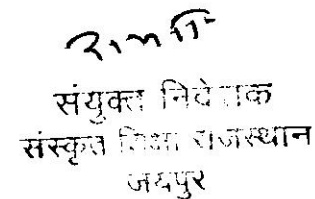 संयुक्त निदेशक
संस्कृत शिक्षा राजस्थान
जयपुर